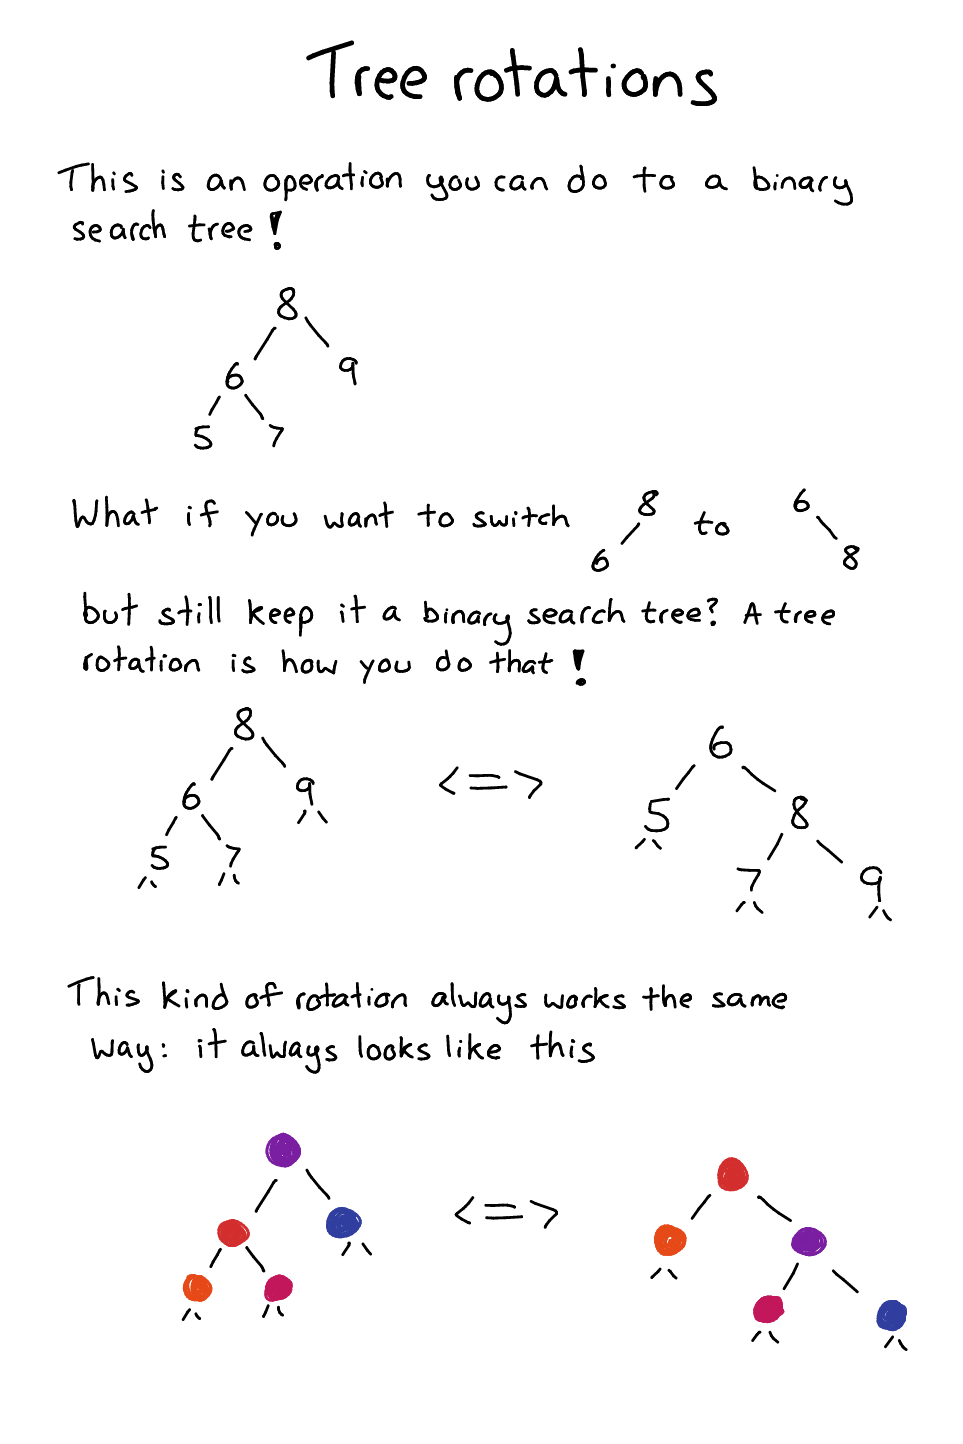 Tree rotations
This is an operation you can do to a binary
search tree!
8
6 9
5 7
What if you want to switch 8 to 6
6 8
but still keep it a binary search tree? A tree
rotation is how you do that!
8 <=> 6
6 9 5 8
5 7 7 9
This kind of rotation always works the same
way: it always looks like this
<=>